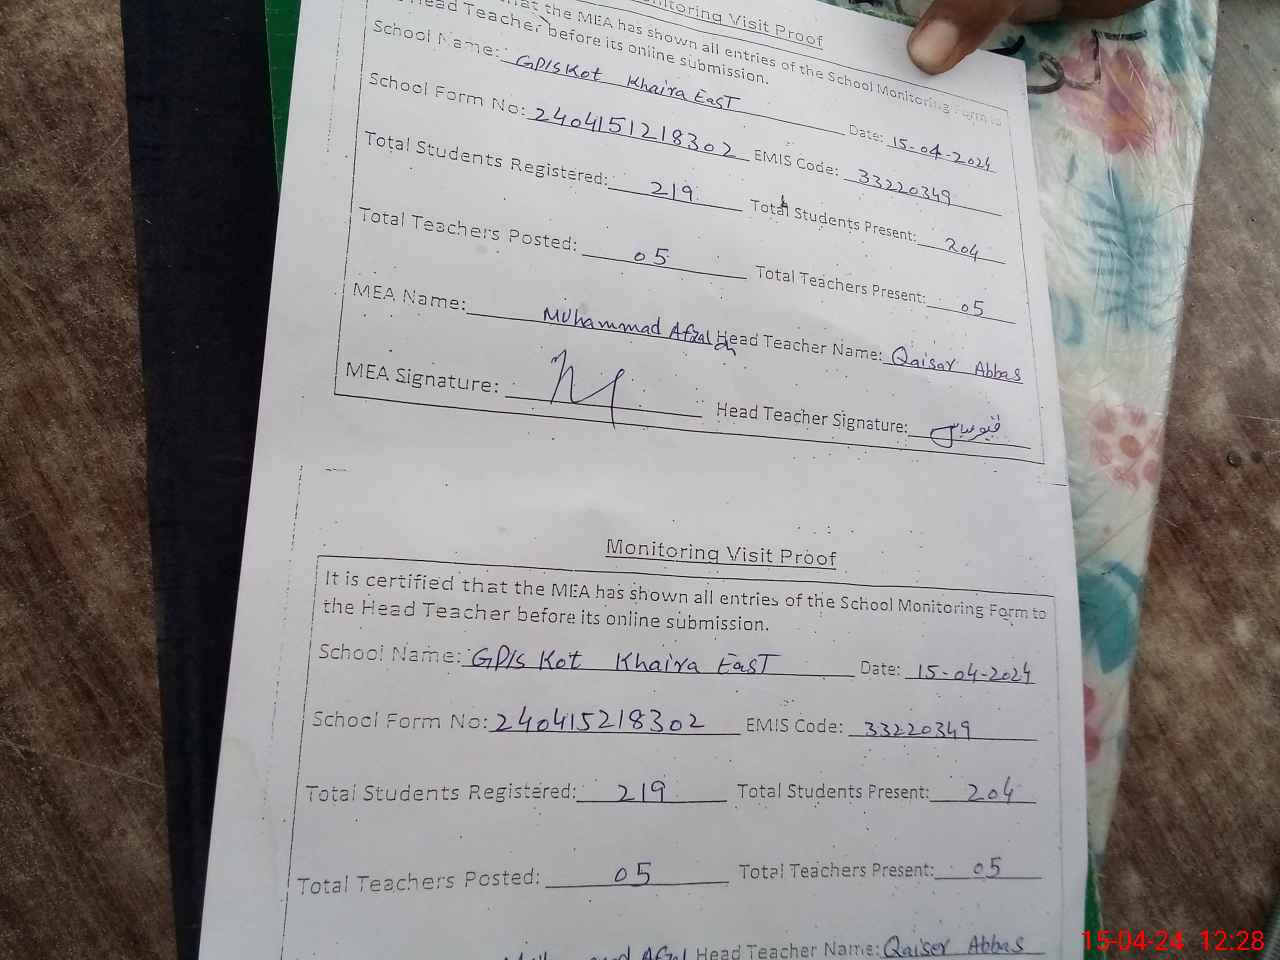 Monitoring Visit Proof
that the MEA has shown all entries of the School Monitoring Form to
Head Teacher before its online submission.
School Name: GPIS Kot Khaira EasT Date: 15-04-2024
School Form No: 2404151218302 EMIS Code: 33220349
Total Students Registered: 219 Total Students Present: 204
Total Teachers Posted: 05 Total Teachers Present: 05
MEA Name: Muhammad Afzal Head Teacher Name: Qaisar Abbas
MEA Signature: Head Teacher Signature:
Monitoring Visit Proof
It is certified that the MEA has shown all entries of the School Monitoring Form to
the Head Teacher before its online submission.
School Name: GPIS Kot Khaira EasT Date: 15-04-2024
School Form No: 240415218302 EMIS Code: 33220349
Total Students Registered: 219 Total Students Present: 204
Total Teachers Posted: 05 Total Teachers Present: 05
Afzal Head Teacher Name: Qaiser Abbas
15-04-24 12:28